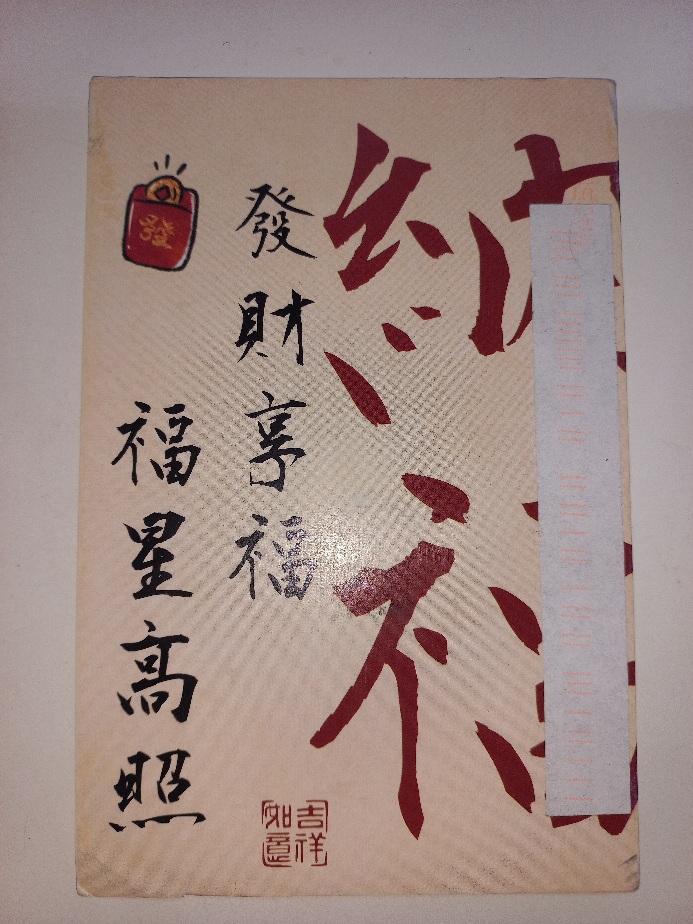 納福
發財享福
福星高照
發
吉祥
如意